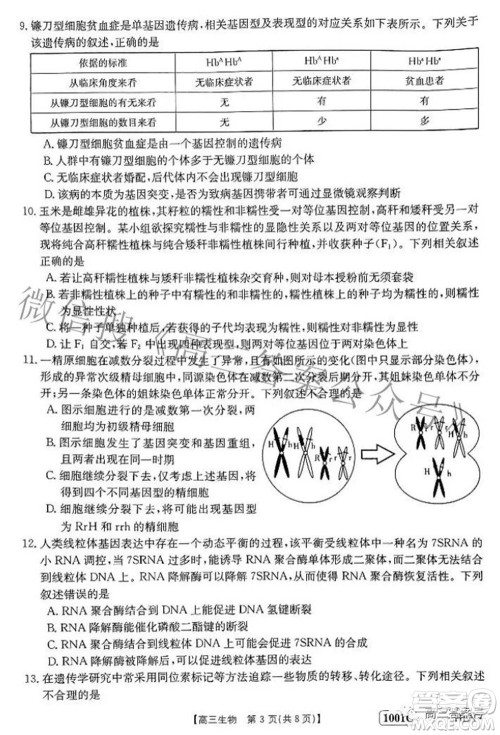 9. 镰刀型细胞贫血症是单基因遗传病,相关基因型及表现型的对应关系如下表所示。下列关于
该遗传病的叙述,正确的是
依据的标准 HbᴬHbᴬ HbᴬHbˢ HbˢHbˢ
从临床角度来看 无临床症状者 无临床症状者 贫血患者
从镰刀型细胞的有无来看 无 有 有
从镰刀型细胞的数目来看 无 少 多
A. 镰刀型细胞贫血症是由一个基因控制的遗传病
B. 人群中有镰刀型细胞的个体多于无镰刀型细胞的个体
C. 无临床症状者婚配,后代有可能出现贫血患者
D. 该病的本质为基因突变,不可通过显微镜观察判断
10. 玉米是雌雄异花的植株,其籽粒的糯性和非糯性受一对等位基因控制,高秆和矮秆受另一
对等位基因控制。某小组欲探究糯性与非糯性、高秆与矮秆这两对相对性状的遗传规律,
现将纯合高秆糯性植株与纯合矮秆非糯性植株间行种植,得到若干种子(F₁)。下列相关叙述
正确的是
A. 若让高秆糯性植株与矮秆非糯性植株杂交育种,则对母本授粉前无须套袋
B. 若非糯性植株上的种子中有糯性的和非糯性的,则可以确定非糯性为显性性状
C. 将一种子单独种植后,若自交后代出现性状分离,则说明该种子为杂合子
D. 若糯性植株上所结的种子均表现为糯性,则可以确定糯性为显性性状
11. 一精原细胞在减数分裂过程中发生了异常,且一直进行细胞分裂(图中只显示部分染色体),
形成的异常次级精母细胞中,同源染色体在减数第二次分裂后期分开,其姐妹染色单体不分
开。另一形成的次级精母细胞中,姐妹染色单体正常分开。下列叙述不合理的是
A. 图示细胞进行的是减数第一次分裂,
称为初级精母细胞
B. 图示细胞发生了基因突变和基因重
组,且发生了染色体数目变异
C. 细胞继续分裂下去,仅考虑图中基因,
得到四个不同基因型的精细胞
D. 细胞继续分裂下去,可得到基因型
为 RrH 和 rrh 的精细胞
H h R r r r
H h R r r
12. 人类线粒体基因表达中存在一个动态平衡的过程,该平衡受线粒体基因中名为 7SRNA 的
小 RNA 调节,7SRNA 可诱导线粒体中的 RNA 聚合酶单体形成二聚体,而二聚体无法与
线粒体的 DNA 结合。RNA 降解酶可以被招募到线粒体中进行 7SRNA 的降解。下列
叙述错误的是
A. RNA 聚合酶结合到 DNA 上能使 DNA 氢键断裂
B. RNA 降解酶能催化磷酸二酯键的断裂
C. RNA 聚合酶结合到线粒体 DNA 上能启动翻译
D. RNA 降解酶减少时,线粒体中的基因表达减弱
13. 在遗传学研究中常用同位素标记等方法追踪物质的转移、转化途径。下列相关叙述
不合理的是
【高三生物 第 3 页(共 8 页)】 1001C